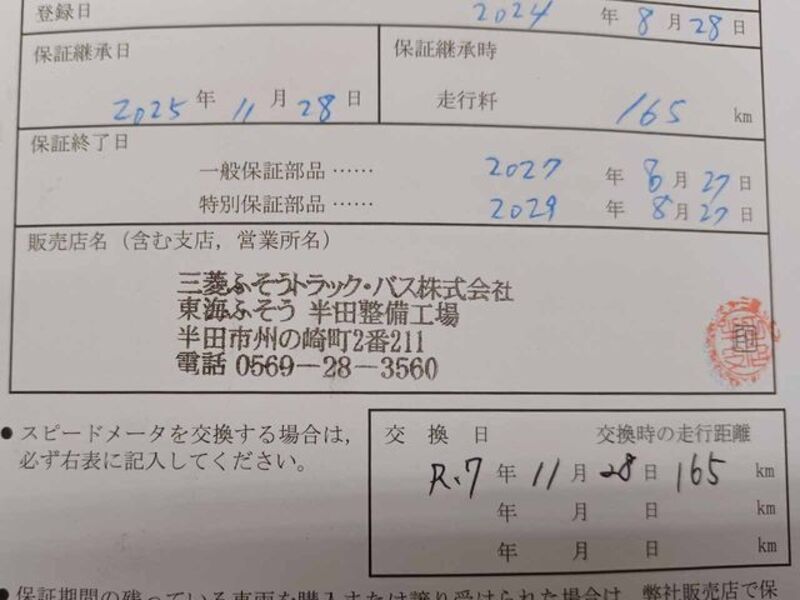 登録日 2024 年 8 月 28 日
保証継承日
2025 年 11 月 28 日
保証継承時
走行粁 165 km
保証終了日
一般保証部品 …… 2027 年 8 月 27 日
特別保証部品 …… 2029 年 8 月 27 日
販売店名（含む支店，営業所名）
三菱ふそうトラック・バス株式会社
東海ふそう 半田整備工場
半田市州の崎町2番211
電話 0569－28－3560
● スピードメータを交換する場合は，
必ず右表に記入してください。
交換日 交換時の走行距離
R.7 年 11 月 28 日 165 km
年 月 日 km
年 月 日 km
● 保証期間の残っている車両を購入または譲り受けられた場合は，弊社販売店で保